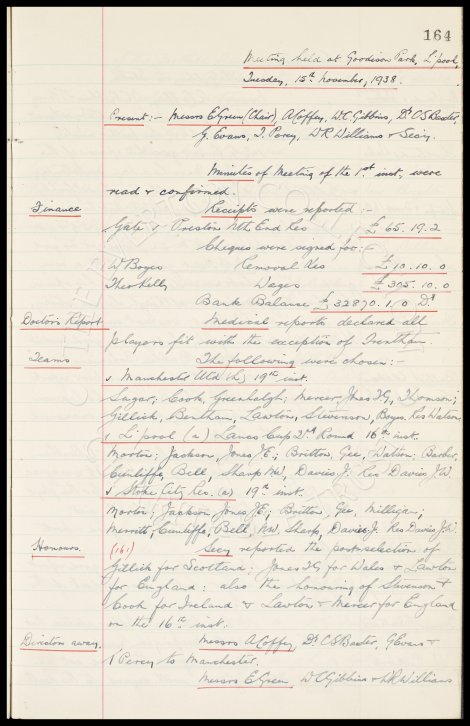 164
Meeting held at Goodison Park, L'pool,
Tuesday, 15th November, 1938.
Present:- Messrs E Green (Chair), A Coffey, W.C. Gibbins, Dr C S Baxter,
G. Evans, T. Percy, W R Williams & Secy.
Minutes of Meeting of the 1st inst, were
read & confirmed.
Finance
Receipts were reported:-
Gate v Preston Nth End Res £ 65. 19. 2
Cheques were signed for:-
W Boyes Removal Xes £ 10. 10. 0
Theo Kelly Wages £ 305. 10. 0
Bank Balance £ 32870. 1. 0 Dr
Doctor's Report
Medical reports declared all
players fit with the exception of Trentham.
Teams
The following were chosen:-
v Manchester Utd (h) 19th inst.
Sagar; Cook, Greenhalgh; Mercer, Jones T.G, Thomson;
Gillick, Bentham, Lawton, Stevenson, Boyes. Res Watson
v L'pool (a) Lancs Cup 2nd Round 16th inst.
Morton; Jackson, Jones J.E.; Britton, Gee, Watson; Barber,
Cunliffe, Bell, Sharp N.W, Davies J. Res Davies J.W.
v Stoke City Res. (a) 19th inst.
Morton; Jackson, Jones J.E.; Britton, Gee, Milligan;
Merritt, Cunliffe, Bell, N.W. Sharp, Davies J. Res Davies J.W.
Honours.
(161) Secy reported the post-selection of
Gillick for Scotland: Jones T G for Wales & Lawton
for England: also the honouring of Stevenson &
Cook for Ireland & Lawton & Mercer for England
on the 16th inst.
Directors away.
Messrs A Coffey, Dr C S Baxter, G Evans &
T Percy to Manchester.
Messrs E Green W C Gibbins & W R Williams